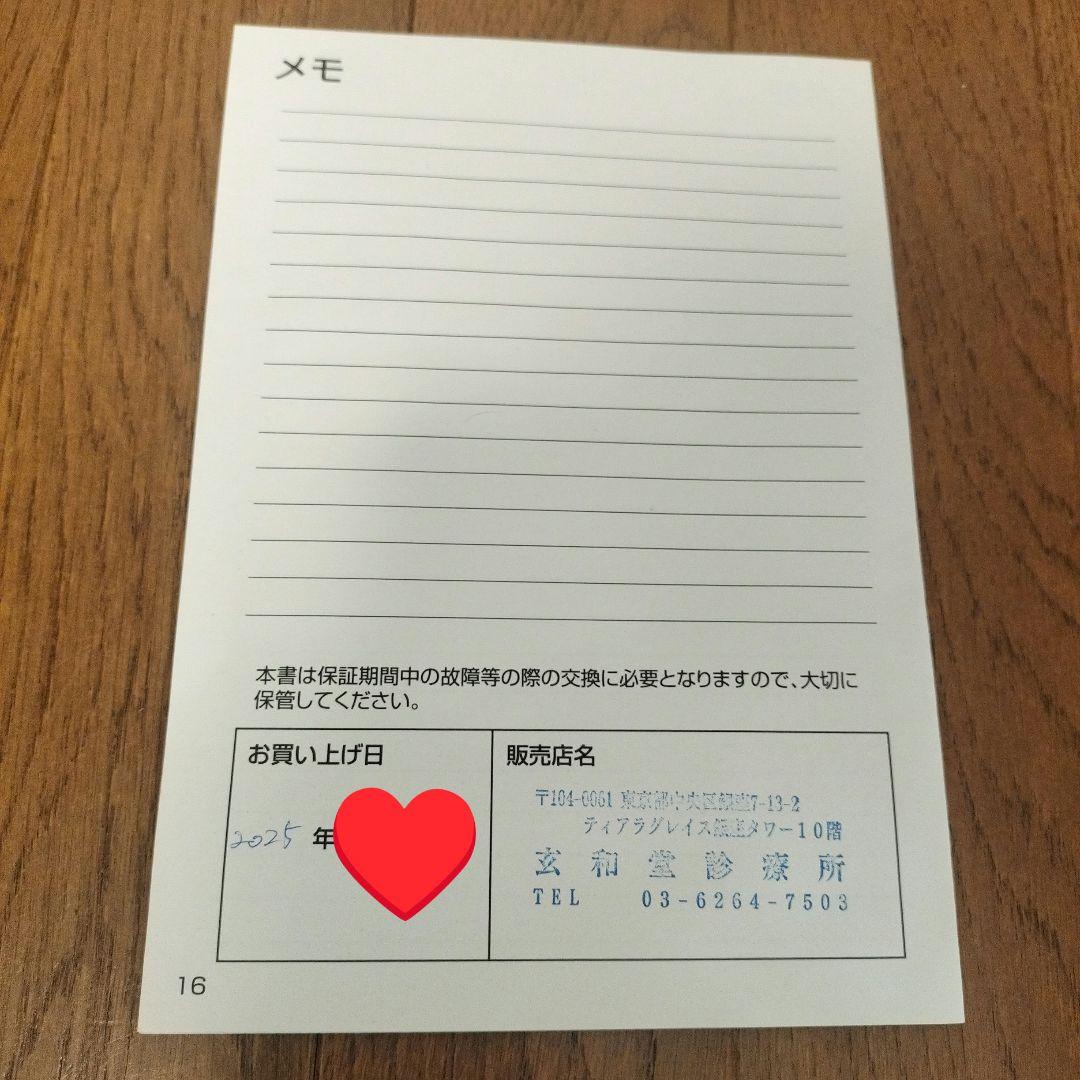 メモ
本書は保証期間中の故障等の際の交換に必要となりますので、大切に
保管してください。
お買い上げ日
2025 年
販売店名
〒104-0061 東京都中央区銀座7-13-2
ティアラグレイス銀座タワー10階
玄和堂診療所
TEL 03-6264-7503
16